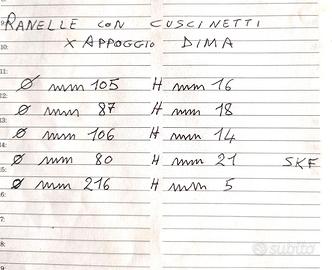 RANELLE CON CUSCINETTI
X APPOGGIO DIMA
Ø mm 105 H mm 16
Ø mm 87 H mm 18
Ø mm 106 H mm 14
Ø mm 80 H mm 21 SKF
Ø mm 216 H mm 5
subito